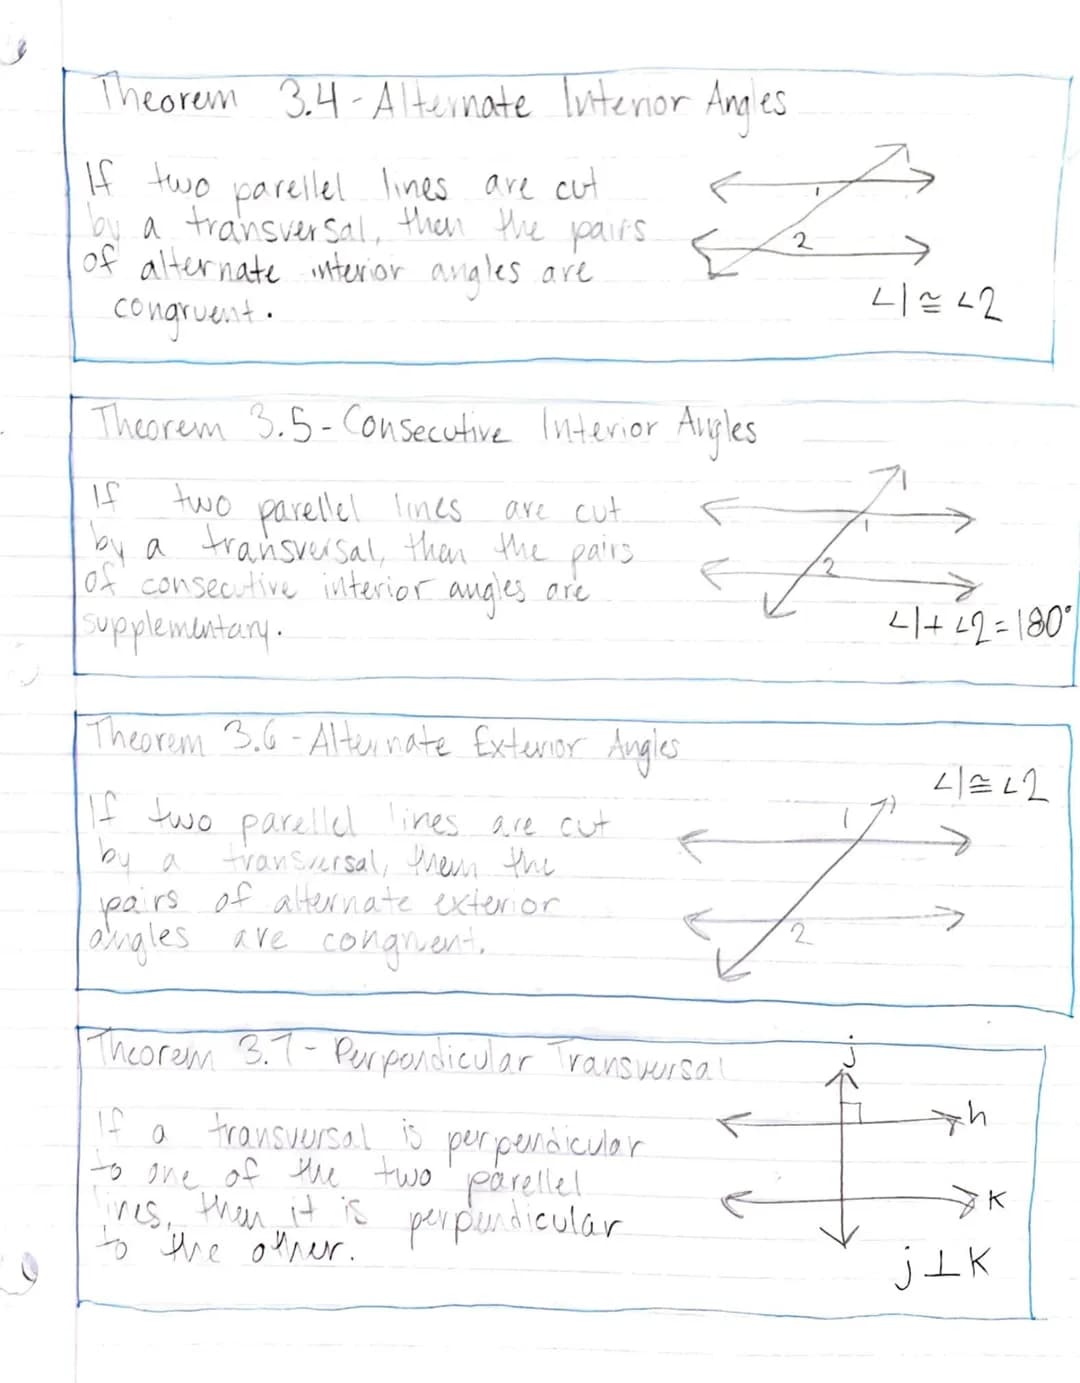 Theorem 3.4 - Alternate Interior Angles
If two parellel lines are cut
by a transversal, then the pairs
of alternate interior angles are
congruent.
1
2
∠1 ≅ ∠2
Theorem 3.5 - Consecutive Interior Angles
If two parellel lines are cut
by a transversal, then the pairs
of consecutive interior angles are
supplementary.
1
2
∠1 + ∠2 = 180°
Theorem 3.6 - Alternate Exterior Angles
If two parellel lines are cut
by a transversal, them the
pairs of alternate exterior
angles are congruent.
∠1 ≅ ∠2
1
2
Theorem 3.7 - Perpendicular Transversal
If a transversal is perpendicular
to one of the two parellel
lines, then it is perpendicular
to the other.
j
h
K
j ⊥ K